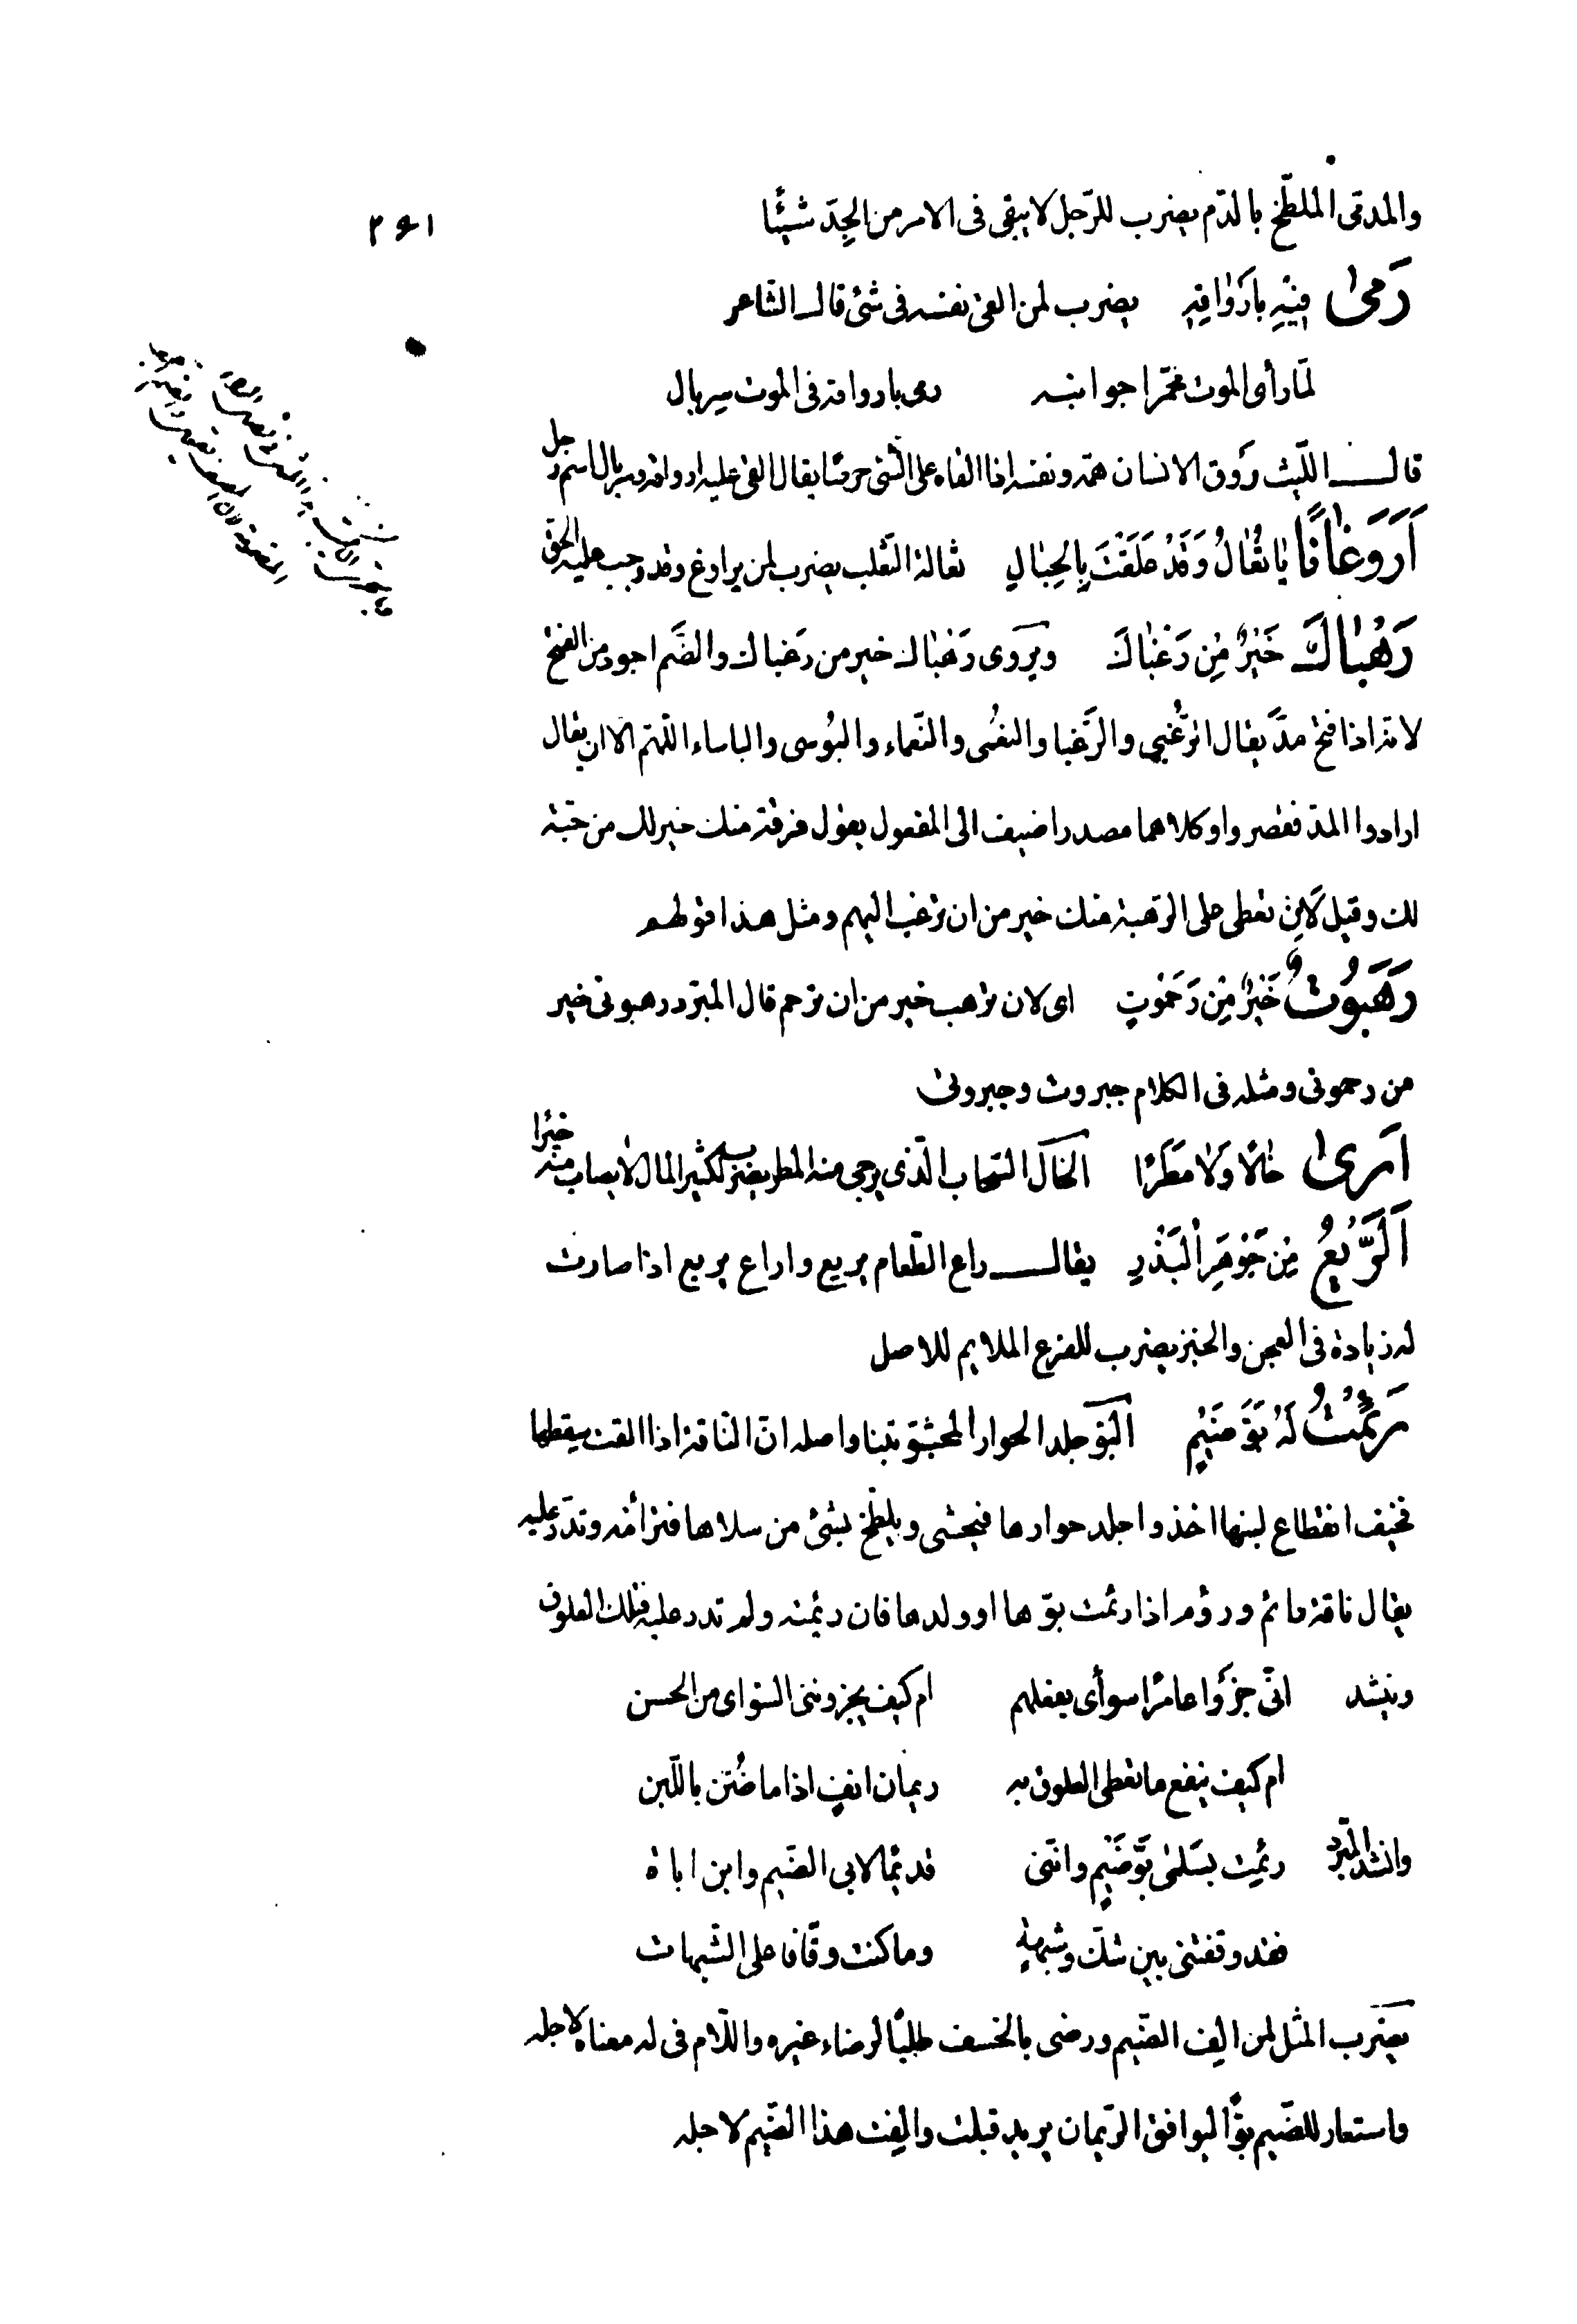 والمدمّى الملطّخ بالدّم يضرب للرّجل لا يبقى فى الامر من الجِدّ شيئًا
٢٤١
رَمىٰ فِيْهِ بِاَرْوٰاقِهِ يضرب لمن القى نفسه فى شئ قال الشّاعر
لمّا رأى الموت محمّرا جوانبه رمى باروا قه فى الموت سربال
قال اللّيث رَوق الانسان همّه ونفسه اذا القاه على الشّئ حرصًا يقال القى عليه اوراقه وسربال اسم رجل
اَرَوَغٰانًا يٰا ثُعٰالُ وَقَدْ عَلَقْتَ بِالحِبٰالِ ثعالة الثّعلب يضرب لمن يراوغ وقد وجب عليه الحقّ
رَهْبٰاكَ خَيْرٌ مِنْ رَغْبٰاكَ ويروى رَهْبٰاك خير من رَغباك والضّم اجود من الفتح
لانّه اذا فتح مدّ يقال الرُّغبى والرَّغبا والنعُمى والنّعماء والبُوسى والباساء اللّهمّ الا ان يقال
ارادوا المدّ فقصروا وكلاهما مصدر اضيف الى المفعول يقول فرقة منك خير لك من حبّه
لك وقيل لَاِن تعطى على الرّهبة منك خير من ان ترغب اليهم ومثل هذا قولهم
رَهَبُوتٌ خَيْرٌ مِنْ رَحَمُوتٍ اى لان ترهب خير من ان ترحم قال المبرّد رهبوتى خير
من رحموتى ومثله فى الكلام جبروت وجبروتى
ارىٰ خٰالًا وَلاٰ مَطَرًا الخال السّحاب الّذى يرجى منه المطر يضرب لكثير المال لا يصاب منه خيرًا
اَلرَّيْعُ مِنْ جَوْهَرِ الْبَذْرِ يقال راع الطّعام يريع واراع يريع اذا صارت
له زيادة فى العجن والخبز يضرب للفرع الملايم للاصل
رَئِمْتُ لَهُ بَوَّ ضَيْمٍ البَوّ جلد الحوار المحشّو تبنا واصله انّ النّاقة اذا القت سقطها
فخيف انقطاع لبنها اخذوا جلد حوارها فيحشى ويلطّخ بشئ من سلاها فترأمه وتدرّ عليه
يقال ناقة رائم ورؤم اذا رئمت بوّها او ولدها فان رئمته ولم تدر عليه فتلك العلوق
وينشد انّى جزَوا عامرًا سوأى بفعلهم ام كيف يجزوننى السّواى من الحسن
ام كيف ينفع ما تعطى العلوق به ريمان انفٍ اذا ما ضُنّ باللّبن
وانشد المبرّد رئمت بسَلمىٰ بوَّ ضَيْمٍ وانّنى قديمًا لابى الضّيم وابن اباة
فقد وقفتنى بين شكّ وشبهةٍ وما كنت وقّافا على الشّبهات
يضرب المثل لمن الِف الضّيم ورضى بالخسف طلبًا لرضاء غيره واللّام فى له معناه لاجله
واستعار للضّيم بوًّا ليوافق الرّيمان يريد قبلت والِفت هذا الضّيم لاجله